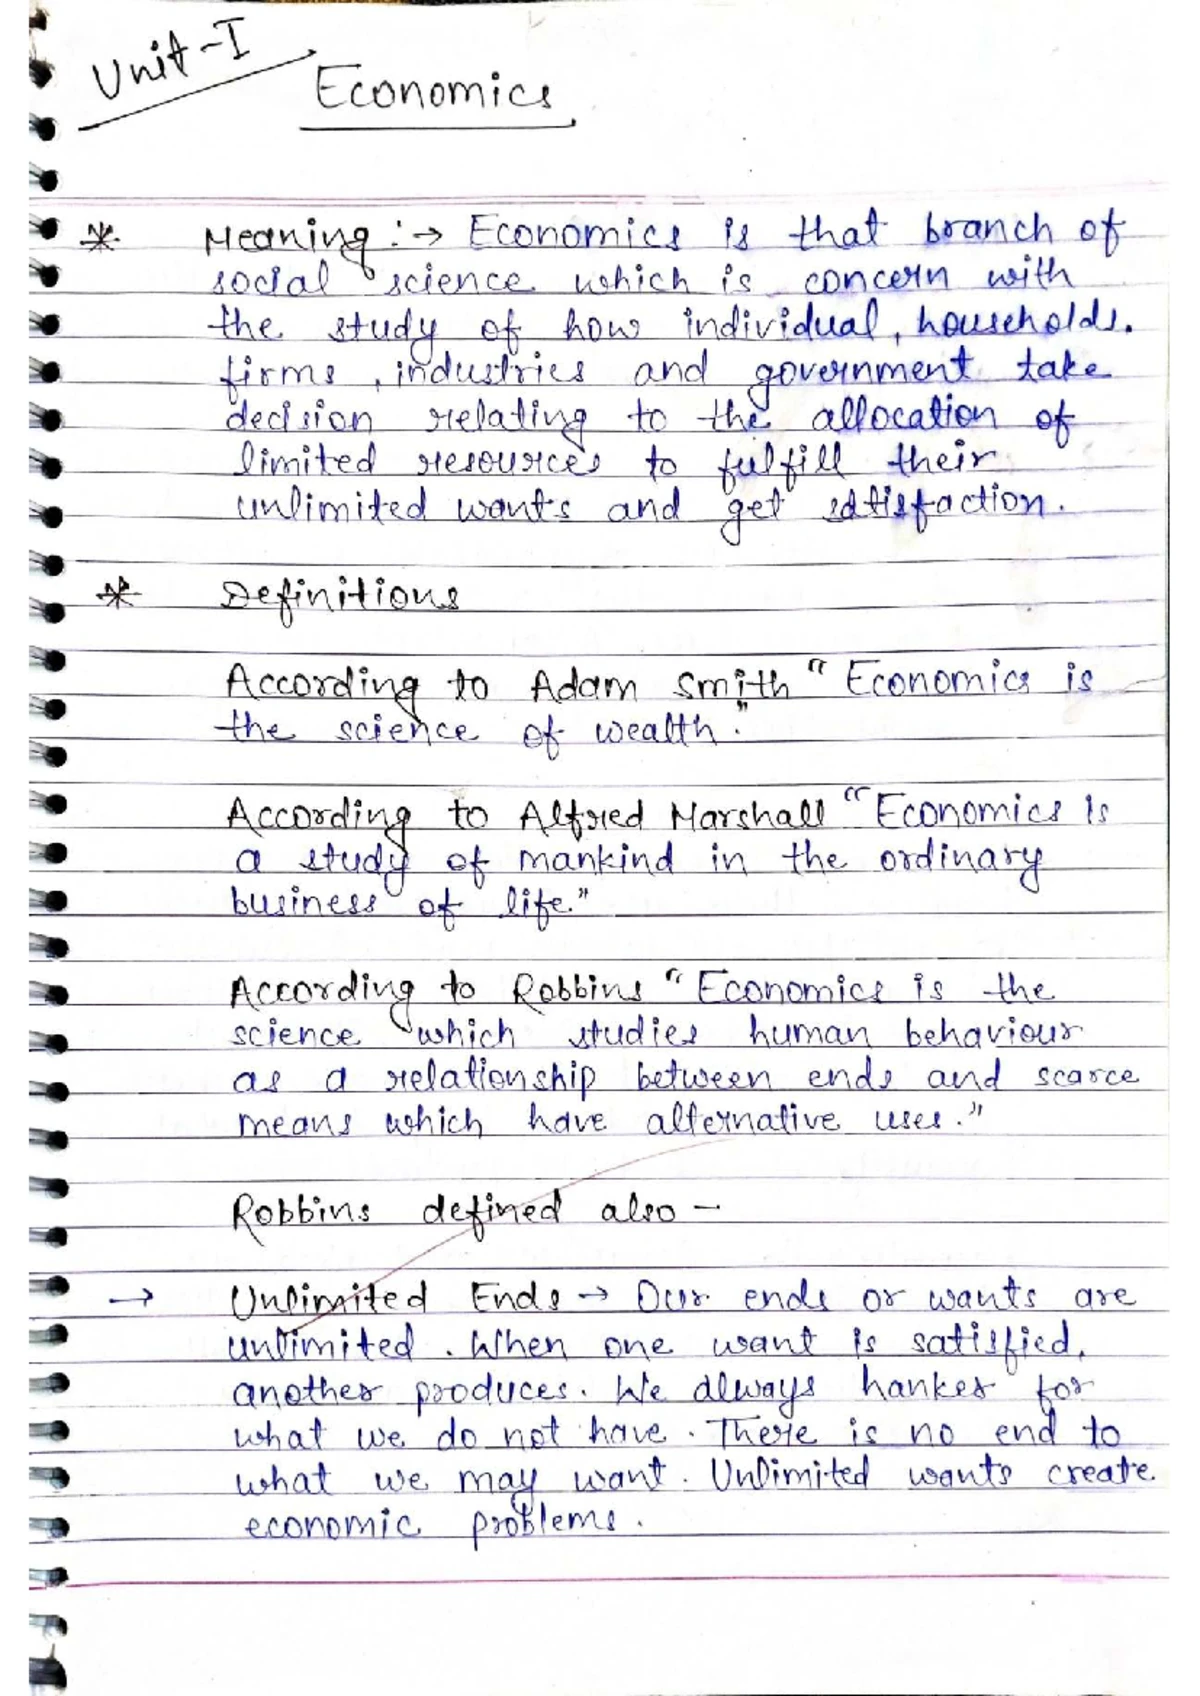 Unit-I
Economics
* Meaning :→ Economics is that branch of
social science which is concern with
the study of how individual, households.
firms, industries and government take
decision relating to the allocation of
limited resources to fulfill their
unlimited wants and get satisfaction.
* Definitions
According to Adam Smith "Economics is
the science of wealth."
According to Alfred Marshall "Economics is
a study of mankind in the ordinary
business of life."
According to Robbins "Economics is the
science which studies human behaviour
as a relationship between ends and scarce
means which have alternative uses."
Robbins defined also -
→ Unlimited Ends → Our ends or wants are
unlimited. When one want is satisfied,
another produces. We always hanker for
what we do not have. There is no end to
what we may want. Unlimited wants create
economic problems.